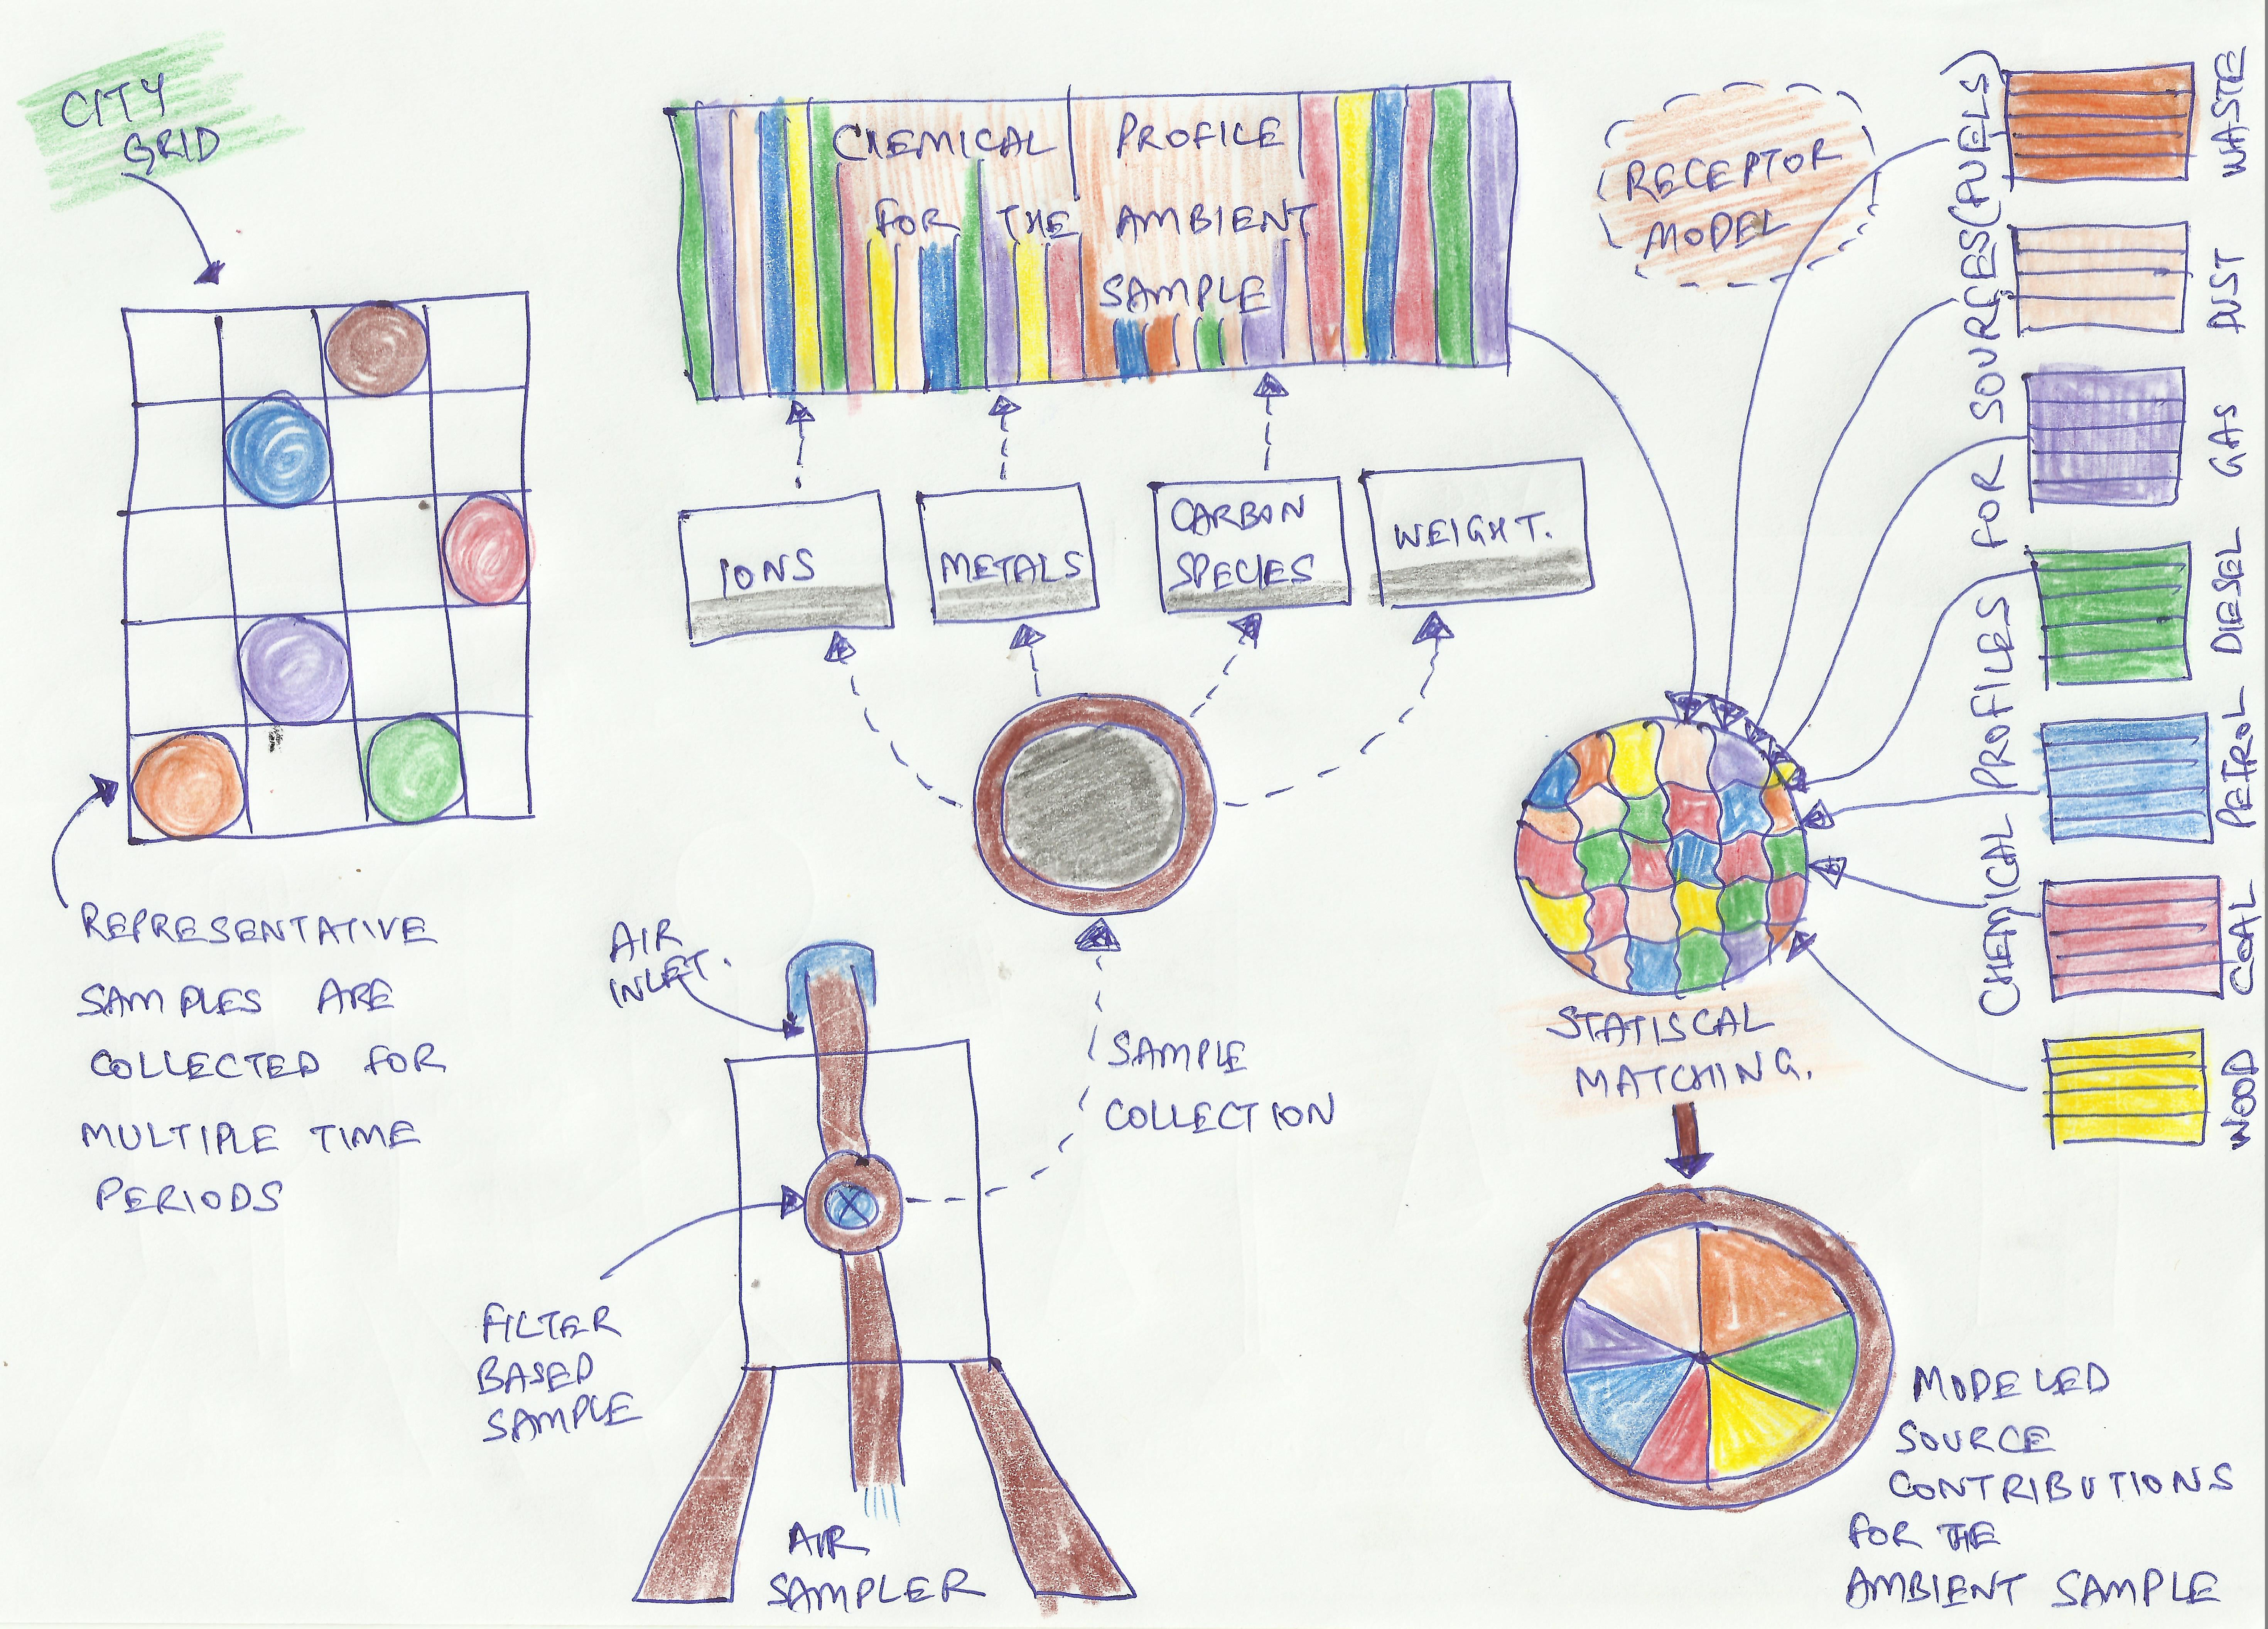 CITY
GRID
REPRESENTATIVE
SAMPLES ARE
COLLECTED FOR
MULTIPLE TIME
PERIODS
CHEMICAL PROFILE
FOR THE AMBIENT
SAMPLE
IONS
METALS
CARBON
SPECIES
WEIGHT.
AIR
INLET.
SAMPLE
COLLECTION
FILTER
BASED
SAMPLE
AIR
SAMPLER
RECEPTOR
MODEL
CHEMICAL PROFILES FOR SOURCES (FUELS)
WASTE
DUST
GAS
DIESEL
PETROL
COAL
WOOD
STATISCAL
MATCHING.
MODELED
SOURCE
CONTRIBUTIONS
FOR THE
AMBIENT SAMPLE